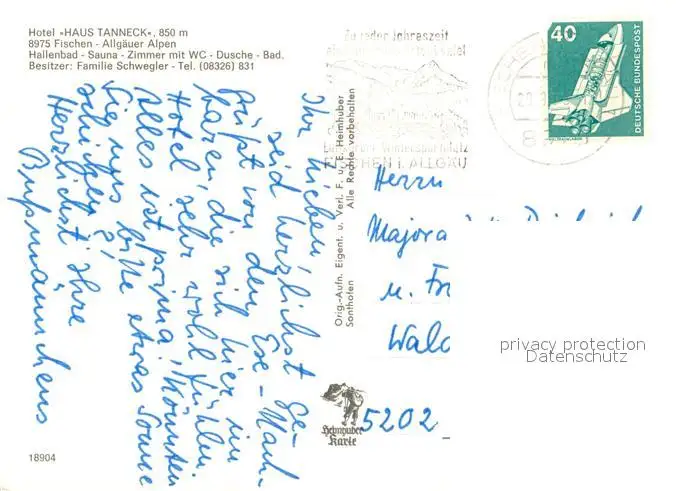 Hotel »HAUS TANNECK«, 850 m
8975 Fischen - Allgäuer Alpen
Hallenbad - Sauna - Zimmer mit WC - Dusche - Bad.
Besitzer: Familie Schwegler - Tel. (08326) 831
Ihr Lieben
seid herzlichst ge-
grüßt von den Ese-
hier im
Hotel sehr wohl fühlen
Alles ist prima, könnten
Sie uns bitte etwas Sonne
schicken?
Herzlichst Ihre
Orig.-Aufn. Eigent. u. Verl. F. u. E. Heimhuber
Sonthofen
Alle Rechte vorbehalten
Zu jeder Jahreszeit
FISCHEN I. ALLGÄU
40
DEUTSCHE BUNDESPOST
Herrn
Majora
u. Fr
Wald
5202
Heimhuber
Karte
privacy protection
Datenschutz
18904